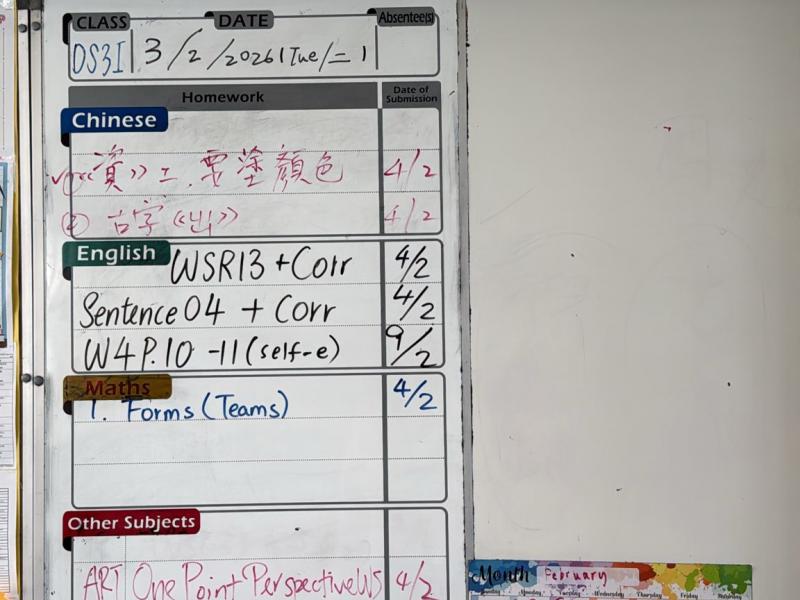 CLASS DATE Absentee(s)
DS3I 3/2/2026(Tue/= 1
Homework Date of Submission
Chinese
✓①《賞》二.要塗顏色 4/2
② 古字《出》 4/2
English
WSR13 + Corr 4/2
Sentence 04 + Corr 4/2
W4P.10 -11 (self-e) 9/2
Maths
1. Forms (Teams) 4/2
Other Subjects
ART One Point Perspective WS 4/2
Month February
Monday Tuesday Wednesday Thursday Friday Saturday